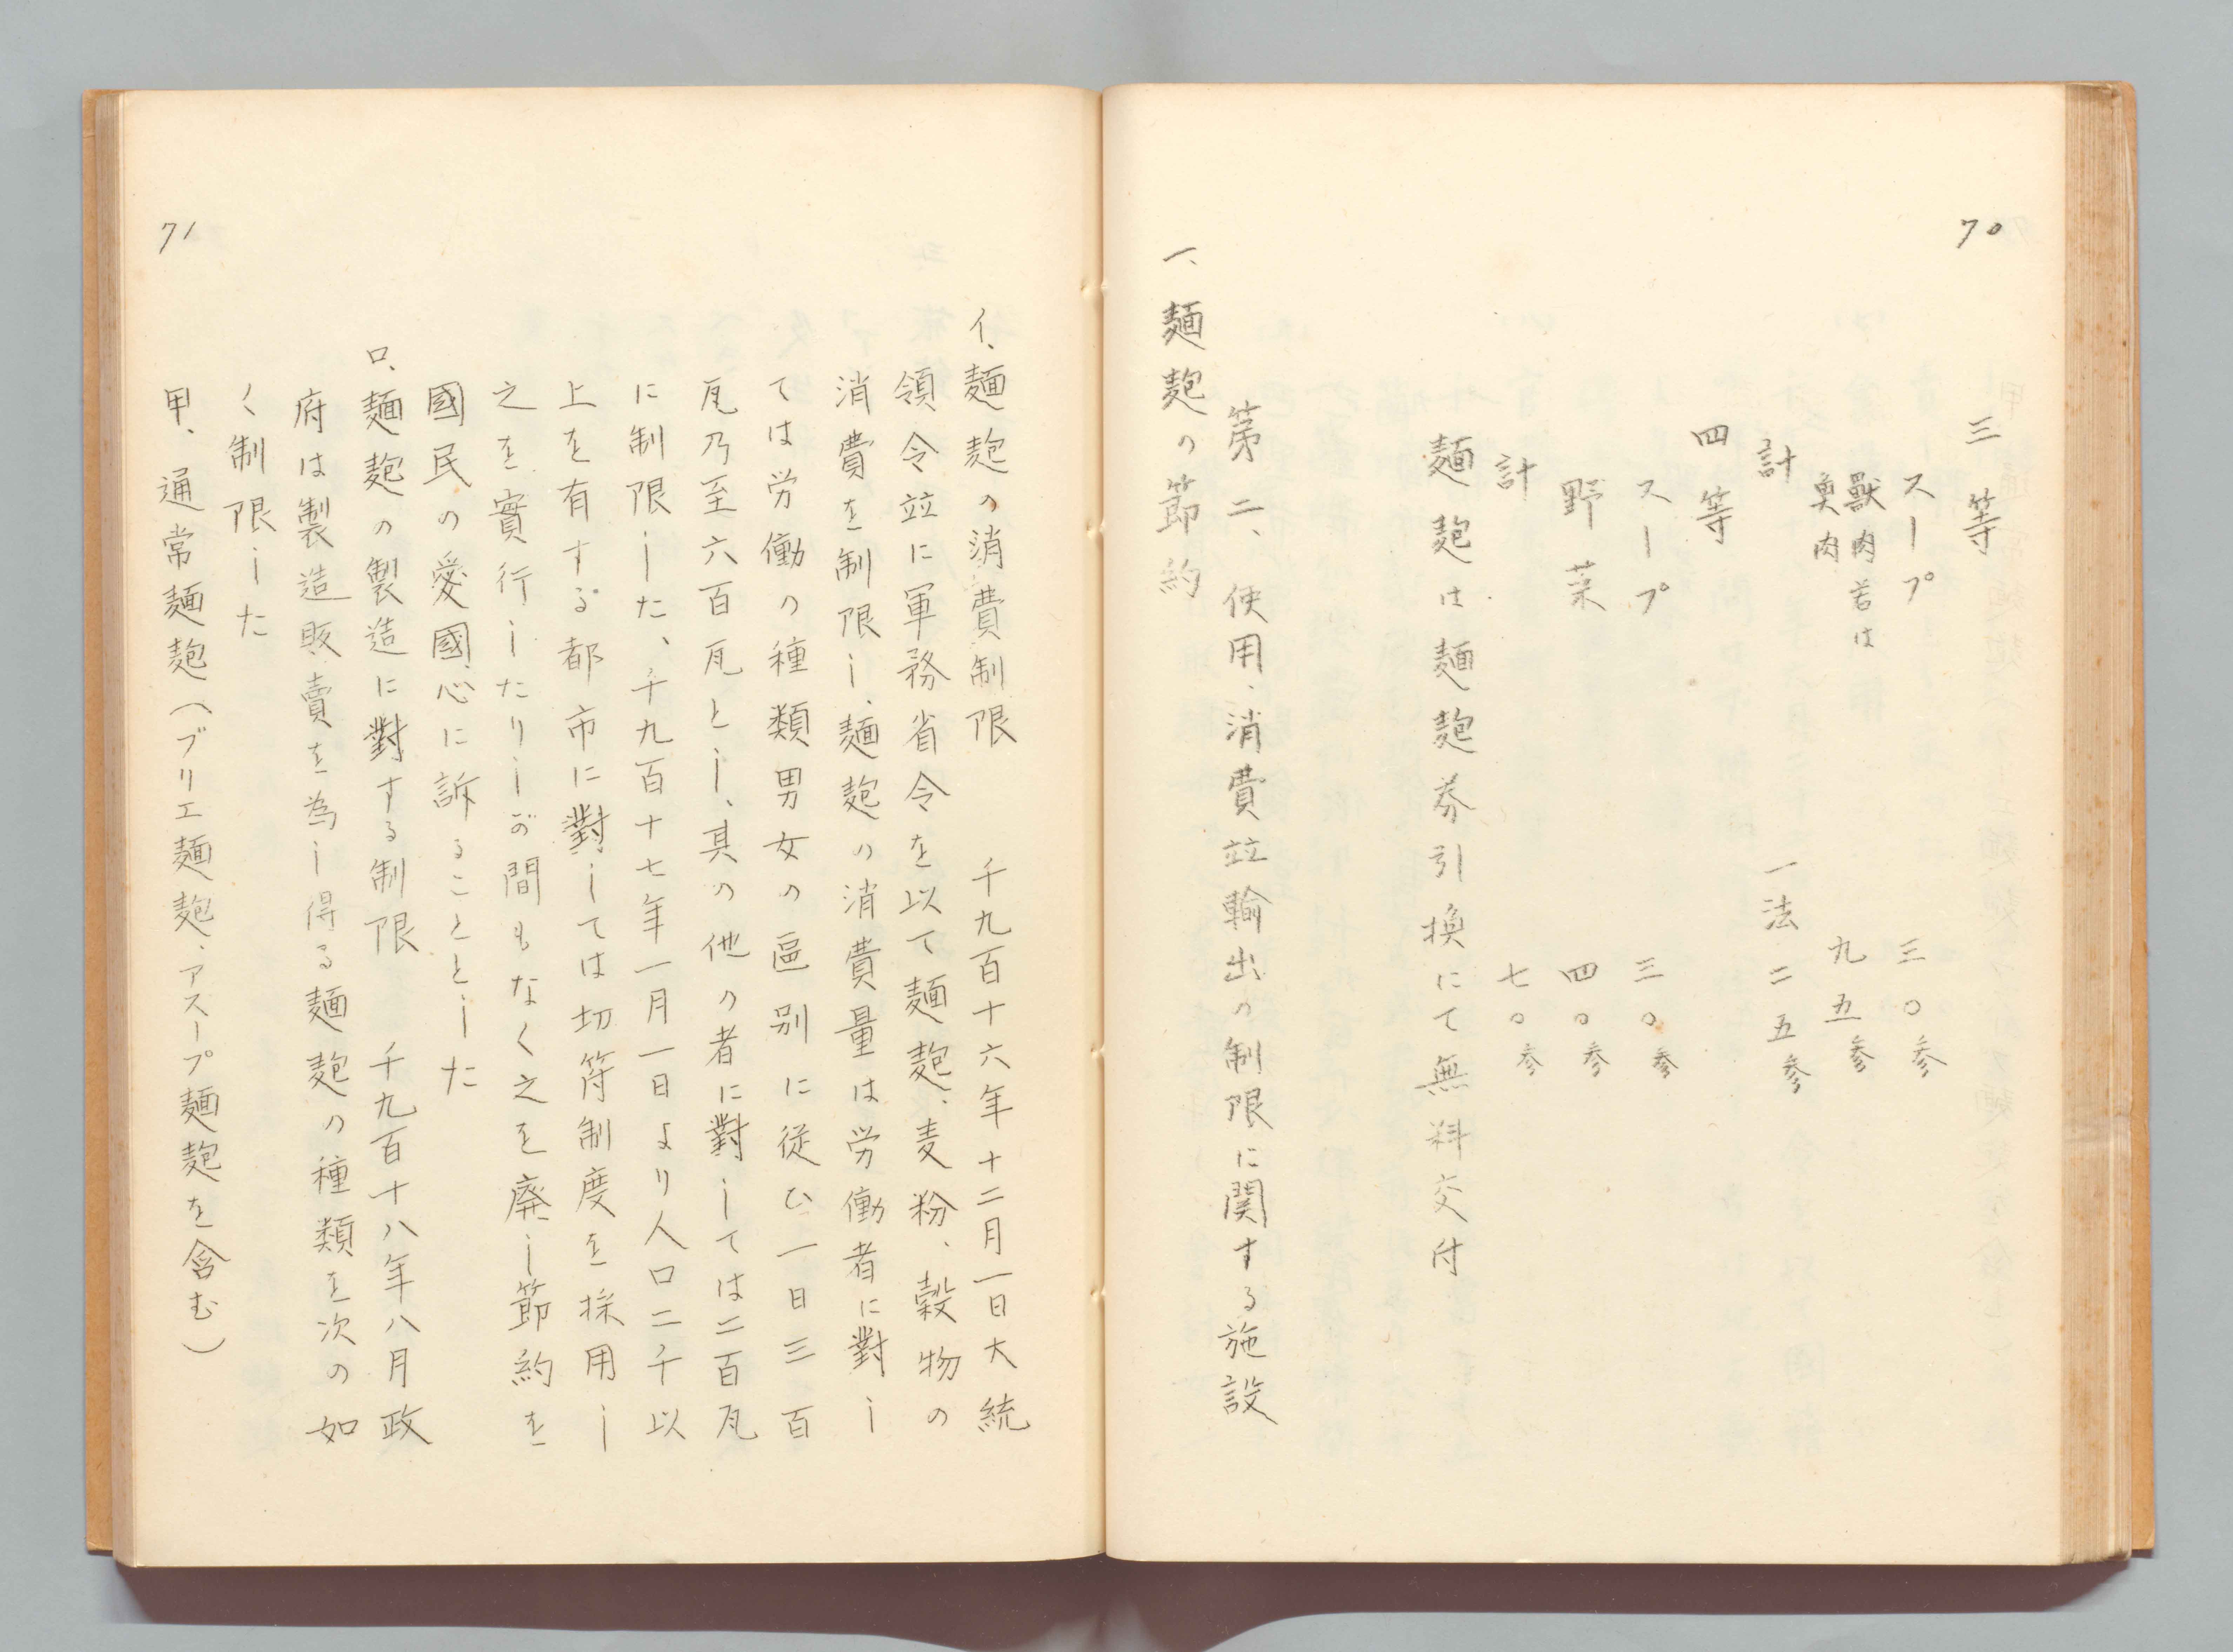 70
三等
スープ　三〇参
獸肉若は
魚肉　九五参
計　一法二五参
四等
スープ　三〇参
野菜　四〇参
計　七〇参
麺麭は麺麭券引換にて無料交付
第二、使用、消費竝輸出の制限に関する施設
一、麺麭の節約
イ、麺麭の消費制限　千九百十六年十二月一日大統
領令竝に軍務省令を以て麺麭、麦粉、穀物の
消費を制限し、麺麭の消費量は労働者に對し
ては労働の種類男女の區別に従ひ一日三百
瓦乃至六百瓦とし、其の他の者に對しては二百瓦
に制限した、千九百十七年一月一日より人口二千以
上を有する都市に對しては切符制度を採用し
之を實行したりしが間もなく之を廃し節約を
國民の愛國心に訴ることとした
ロ、麺麭の製造に對する制限　千九百十八年八月政
府は製造販賣を為し得る麺麭の種類を次の如
く制限した
甲、通常麺麭（ブリエ麺麭、アスープ麺麭を含む）
71